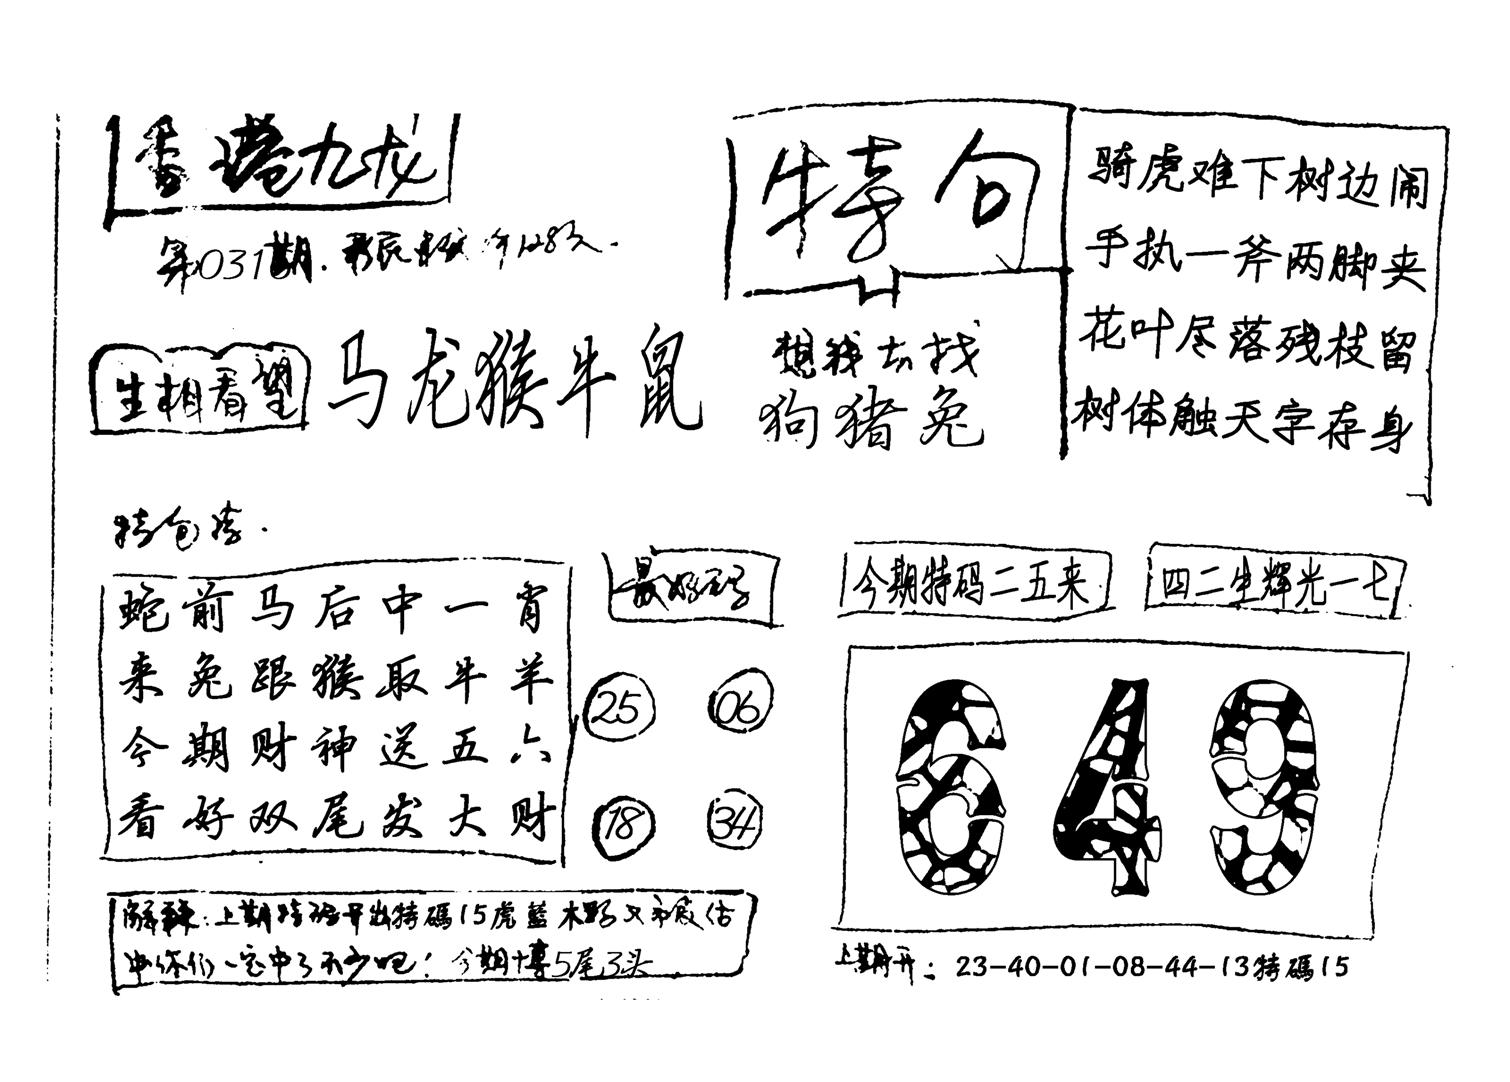 香港九龙
第031期.
生相看望
马龙猴牛鼠
特句
想钱去找
狗猪兔
骑虎难下树边闹
手执一斧两脚夹
花叶尽落残枝留
树体触天字存身
特包
蛇前马后中一肖
来兔跟猴取牛羊
今期财神送五六
看好双尾发大财
最好码
25 06
18 34
今期特码二五来
四二生辉光一七
649
解: 上期特码开出特碼15虎藍木
你们一定中了不少吧! 今期博5尾3头
上期开: 23-40-01-08-44-13特碼15